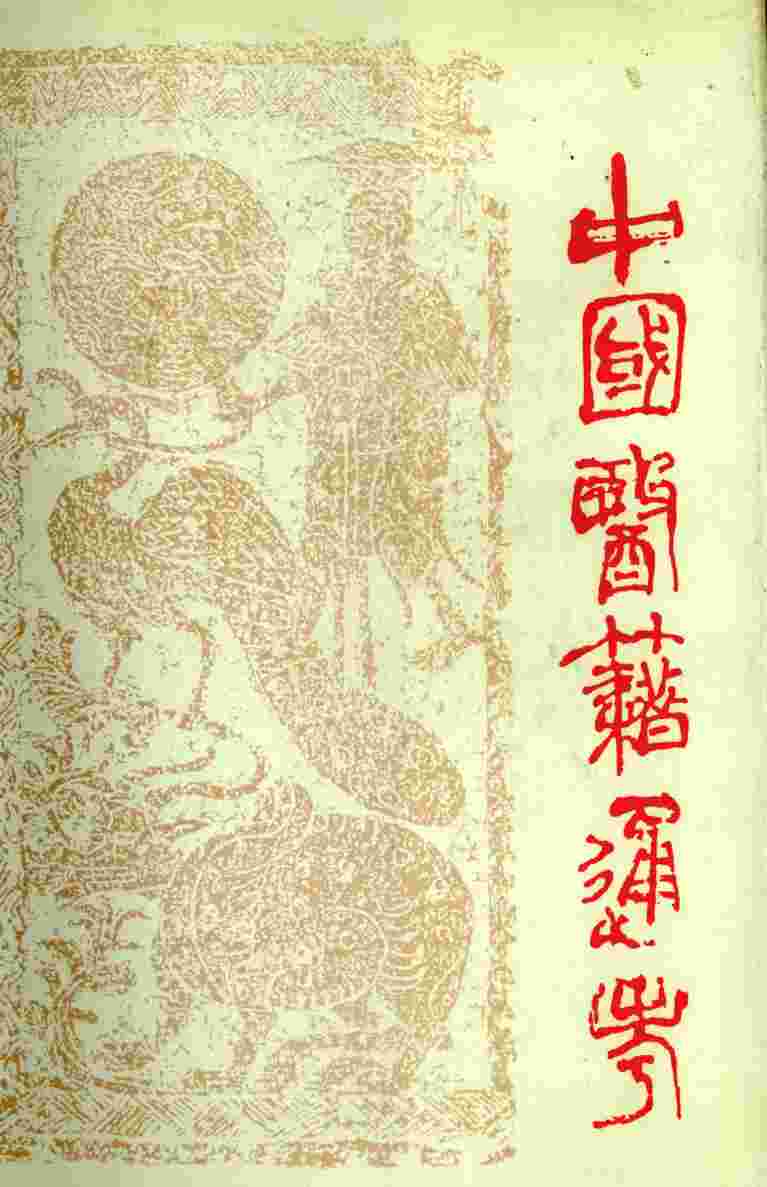 中國醫籍通考